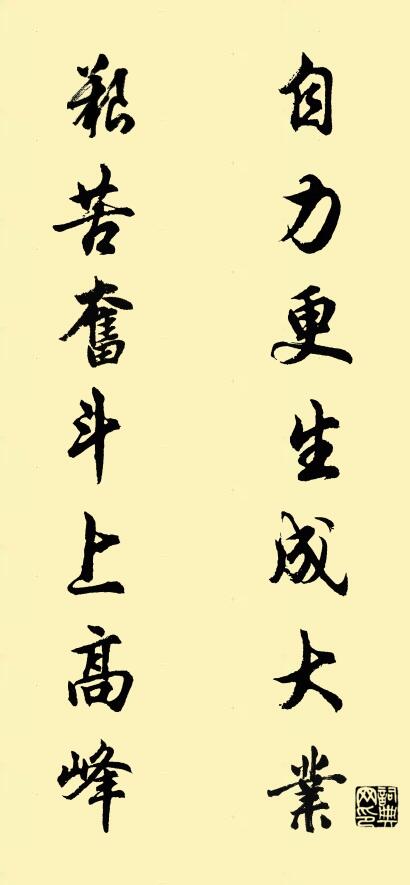 自力更生成大業
艱苦奮斗上高峰
詞典網印